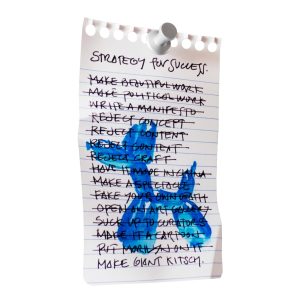 STRATEGY FOR SUCCESS.
MAKE BEAUTIFUL WORK
MAKE POLITICAL WORK
WRITE A MANIFESTO
REJECT CONCEPT
REJECT CONTENT
REJECT CONTEXT
REJECT CRAFT
HAVE IT MADE IN CHINA
MAKE A SPECTACLE
FAKE YOUR OWN DEATH
OPEN AN ART GALLERY
SUCK UP TO CURATORS
MAKE IT A CARTOON
PUT MARILYN ON IT
MAKE GIANT KITSCH.